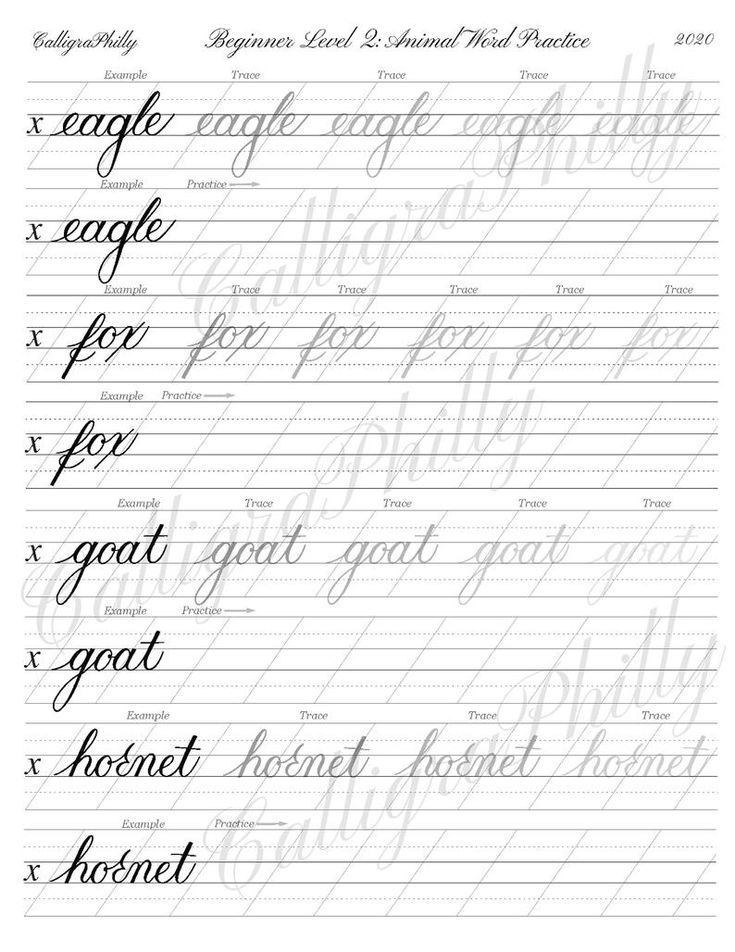 CalligraPhilly Beginner Level 2: Animal Word Practice 2020
Example Trace Trace Trace Trace
x eagle eagle eagle eagle eagle
Example Practice
x eagle
Example Trace Trace Trace Trace Trace
x fox fox fox fox fox fox
Example Practice
x fox
Example Trace Trace Trace Trace
x goat goat goat goat goat
Example Practice
x goat
Example Trace Trace Trace
x hornet hornet hornet hornet
Example Practice
x hornet
CalligraPhilly
CalligraPhilly
CalligraPhilly